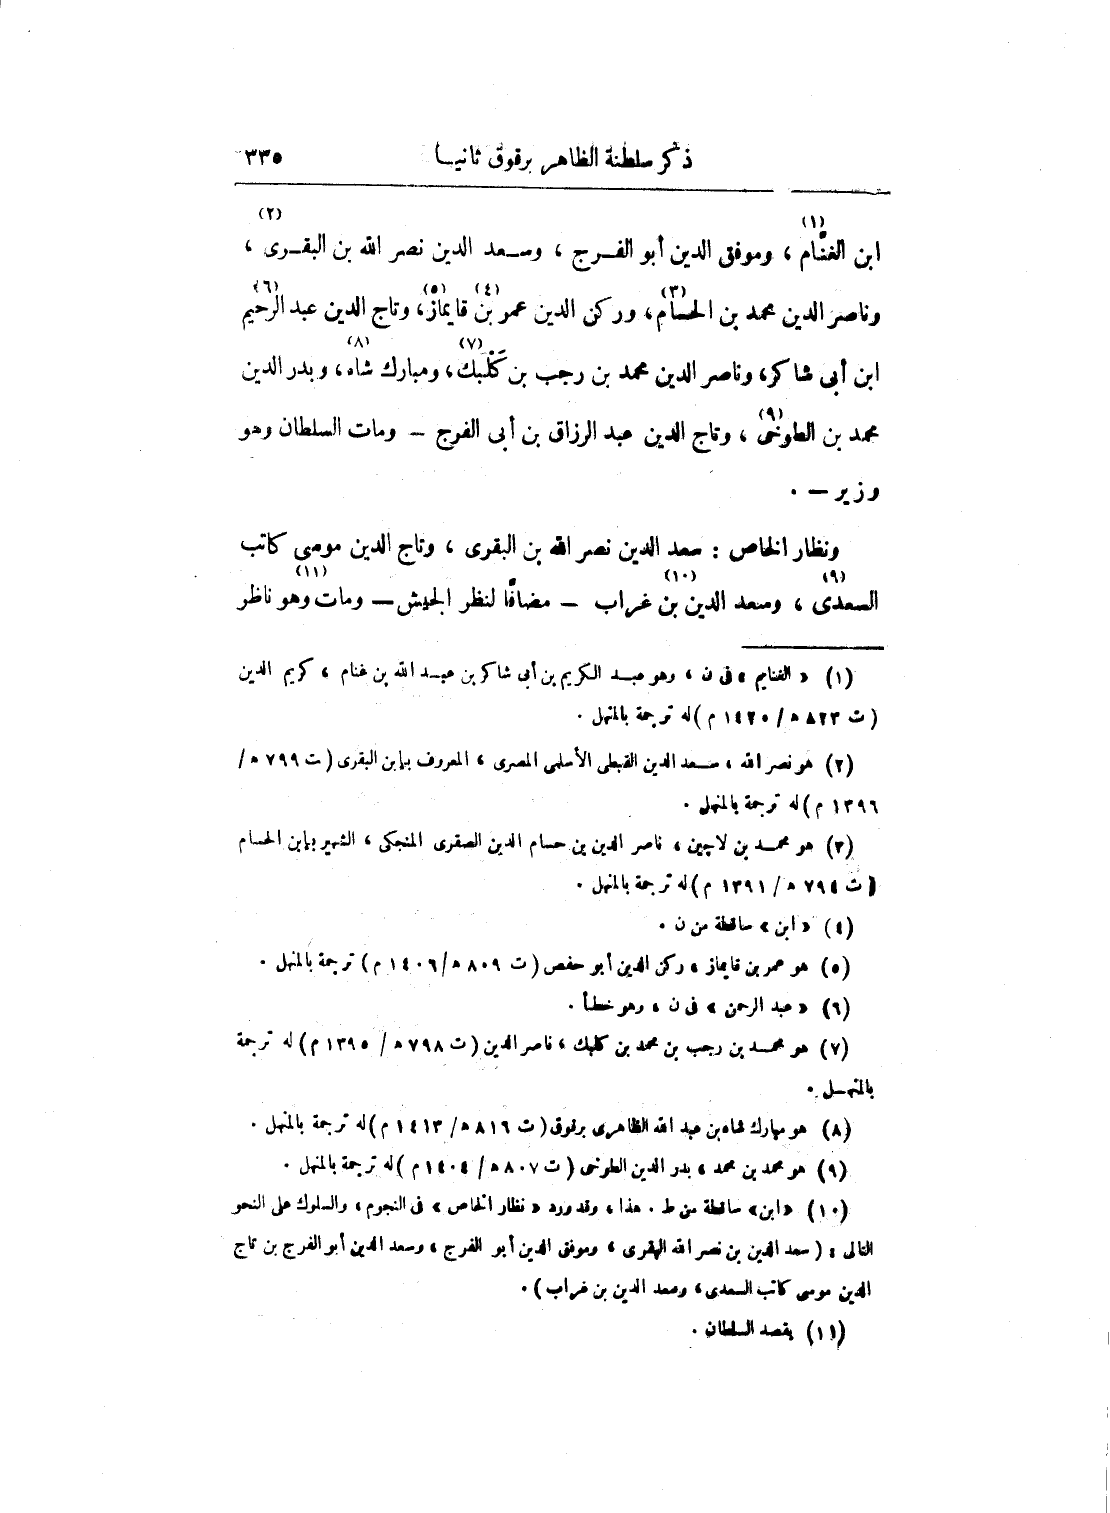 ذكر سلطنة الظاهر برقوق ثانيا ٣٣٥
ابن الغنَّام (١) ، وموفق الدين أبو الفرج ، وسعد الدين نصر الله بن البقرى (٢) ،
وناصر الدين محمد بن الحسام (٣) ، وركن الدين عمر بن (٤) قايماز (٥) ، وتاج الدين عبد الرحيم (٦)
ابن أبى شاكر ، وناصر الدين محمد بن رجب بن كَلْبَك (٧) ، ومبارك شاه (٨) ، وبدر الدين
محمد بن الطوخى (٩) ، وتاج الدين عبد الرزاق بن أبى الفرج – ومات السلطان وهو
وزير – .
ونظار الخاص : سعد الدين نصر الله بن البقرى ، وتاج الدين موسى كاتب
السعدى (٩) ، وسعد الدين بن (١٠) غراب – مضافًا لنظر الجيش – ومات (١١) وهو ناظر
(١) « الغنايم » فى ن ، وهو عبد الكريم بن أبى شاكر بن عبد الله بن غنام ، كريم الدين
( ت ٨٢٣ ه / ١٤٢٠ م ) له ترجمة بالمنهل .
(٢) هو نصر الله ، سعد الدين القبطى الأسلمى المصرى ، المعروف بإبن البقرى ( ت ٧٩٩ ه /
١٣٩٦ م ) له ترجمة بالمنهل .
(٣) هو محمد بن لاچين ، ناصر الدين بن حسام الدين الصقرى المنجكى ، الشهير بإبن الحسام
( ت ٧٩٤ ه / ١٣٩١ م ) له ترجمة بالمنهل .
(٤) « ابن » ساقطة من ن .
(٥) هو عمر بن قايماز ، ركن الدين أبو حفص ( ت ٨٠٩ ه / ١٤٠٦ م ) ترجمة بالمنهل .
(٦) « عبد الرحمن » فى ن ، وهو خطأ .
(٧) هو محمد بن رجب بن محمد بن كلبك ، ناصر الدين ( ت ٧٩٨ ه / ١٣٩٥ م ) له ترجمة
بالمنهل .
(٨) هو مبارك شاه بن عبد الله الظاهرى برقوق ( ت ٨١٦ ه / ١٤١٣ م ) له ترجمة بالمنهل .
(٩) هو محمد بن محمد ، بدر الدين الطوخى ( ت ٨٠٧ ه / ١٤٠٤ م ) له ترجمة بالمنهل .
(١٠) « ابن » ساقطة من ط . هذا ، وقد ورد « نظار الخاص » فى النجوم ، والسلوك على النحو
التالى : ( سعد الدين بن نصر الله البقرى ، وموفق الدين أبو الفرج ، وسعد الدين أبو الفرج بن تاج
الدين موسى كاتب السعدى ، وسعد الدين بن غراب ) .
(١١) يقصد السلطان .